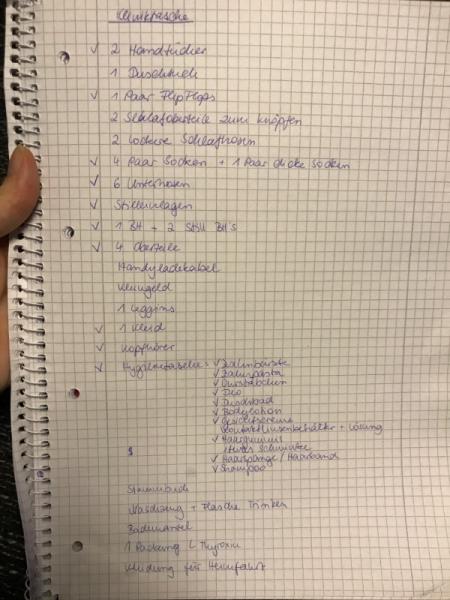 Kliniktasche
✓ 2 Handtücher
1 Duschtuch
✓ 1 Paar FlipFlops
2 Schlafoberteile zum Knöpfen
2 lockere Schlafhosen
✓ 4 Paar Socken + 1 Paar dicke Socken
✓ 6 Unterhosen
✓ Stilleinlagen
✓ 1 BH + 2 Still BH's
✓ 4 Oberteile
Handyladekabel
Kleingeld
1 Leggins
✓ 1 Kleid
✓ Kopfhörer
✓ Hygienetasche: ✓ Zahnbürste
✓ Zahnpasta
✓
✓ Deo
✓ Duschbad
✓ Bodylotion
✓ Gesichtscreme
Kontaktlinsenbehälter + Lösung
✓ Haargummis
etwas Schminke
✓ Haarspange / Haarband
✓ Shampoo
Stammbuch
Waschzeug + Flasche Trinken
Bademantel
1 Packung L-Thyroxin
Kleidung für Heimfahrt